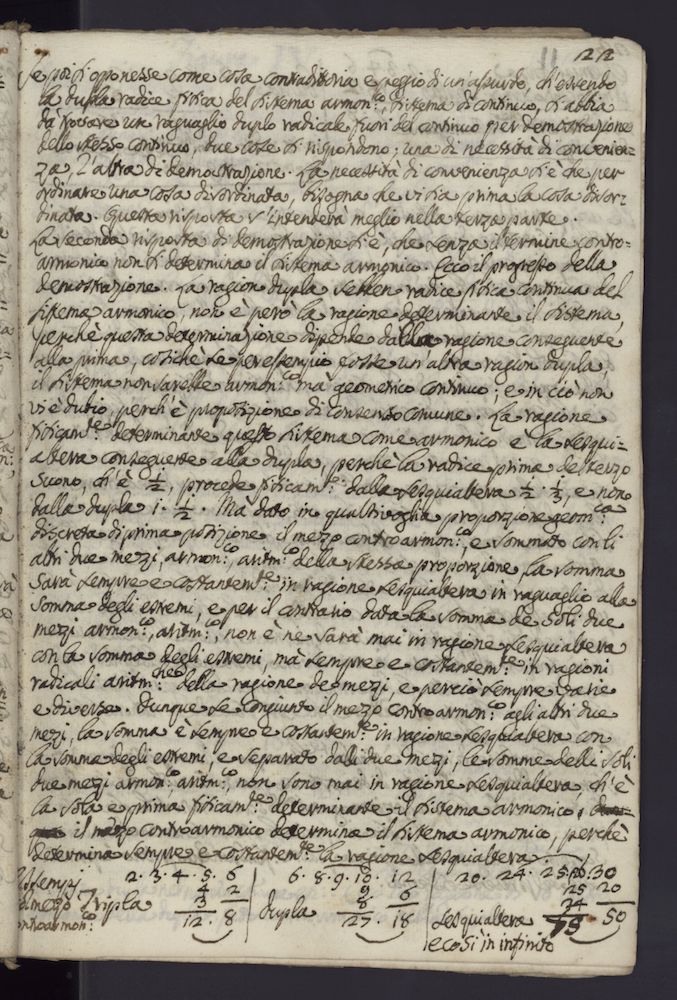 11 22
Se poi si opponesse come cosa contraditoria e peggio di un'assurdo, ch'essendo
la dupla radice fisica del sistema armon:co, sistema di continuo, si abbia
da trovare un raguaglio duplo radicale fuori del continuo per demostrazione
dello stesso continuo, due cose si rispondono; una di necessità di convenien=
za, l'altra di demostrazione. La necessità di convenienza si è che per
ordinare una cosa disordinata, bisogna che vi sia prima la cosa disor=
dinata. Questa risposta s'intenderà meglio nella terza parte.
La seconda risposta di demostrazione si è, che senza il termine contro=
armonico non si determina il sistema armonico. Ecco il progresso della
demostrazione. La ragion dupla sebben radice fisica continua del
sistema armonico, non è però la ragione determinante il sistema,
perchè questa determinazione dipende dalla ragione conseguente
alla prima, cosichè se per essempio fosse un'altra ragion dupla,
il sistema non sarebbe armon:co mà geometrico continuo; e in ciò non
vi è dubio, perch'è proposizione di consenso comune. La ragione
fisicam:te determinante questo sistema come armonico è la sesqui=
altera conseguente alla dupla, perchè la radice prima del terzo
suono, ch'è 1/2, procede fisicam:te dalla sesquialtera 1/2. 1/3, e non
dalla dupla 1. 1/2. Mà dato in qualsivoglia proporzione geom:ca
discreta di prima posizione il mezo controarmon:co, e sommato con li
altri due mezi, armon:co, aritm:co della stessa proporzione, la somma
sarà sempre e costantem:te in ragione sesquialtera in raguaglio alla
somma degli estremi, e per il contrario data la somma de soli due
mezzi armon:co, aritm:co, non è nè sarà mai in ragione sesquialtera
con la somma degli estremi, mà sempre e costantem:te in ragioni
radicali aritm:che della ragione de mezzi, e perciò sempre varie
e diverse. Dunque se congiunto il mezo controarmon:co agli altri due
mezi, la somma è sempre e costantem:te in ragione sesquialtera con
la somma degli estremi, e separato dalli due mezi, le somme delli soli
due mezzi armon:co, aritm:co, non sono mai in ragione sesquialtera, ch'è
la sola e prima fisicam:te determinante il sistema armonico,
il mezo controarmonico determina il sistema armonico, perchè
determina sempre e costantem:te la ragione sesquialtera.
2. 3. 4. 5. 6 6. 8. 9. 10. 12 20. 24. 25. 26. 30
mezo Tripla 4 2 dupla 9 6 25 20
controarmon:co 3 8 24
12. 8 27. 18 sesquialtera 75. 50
e così in infinito